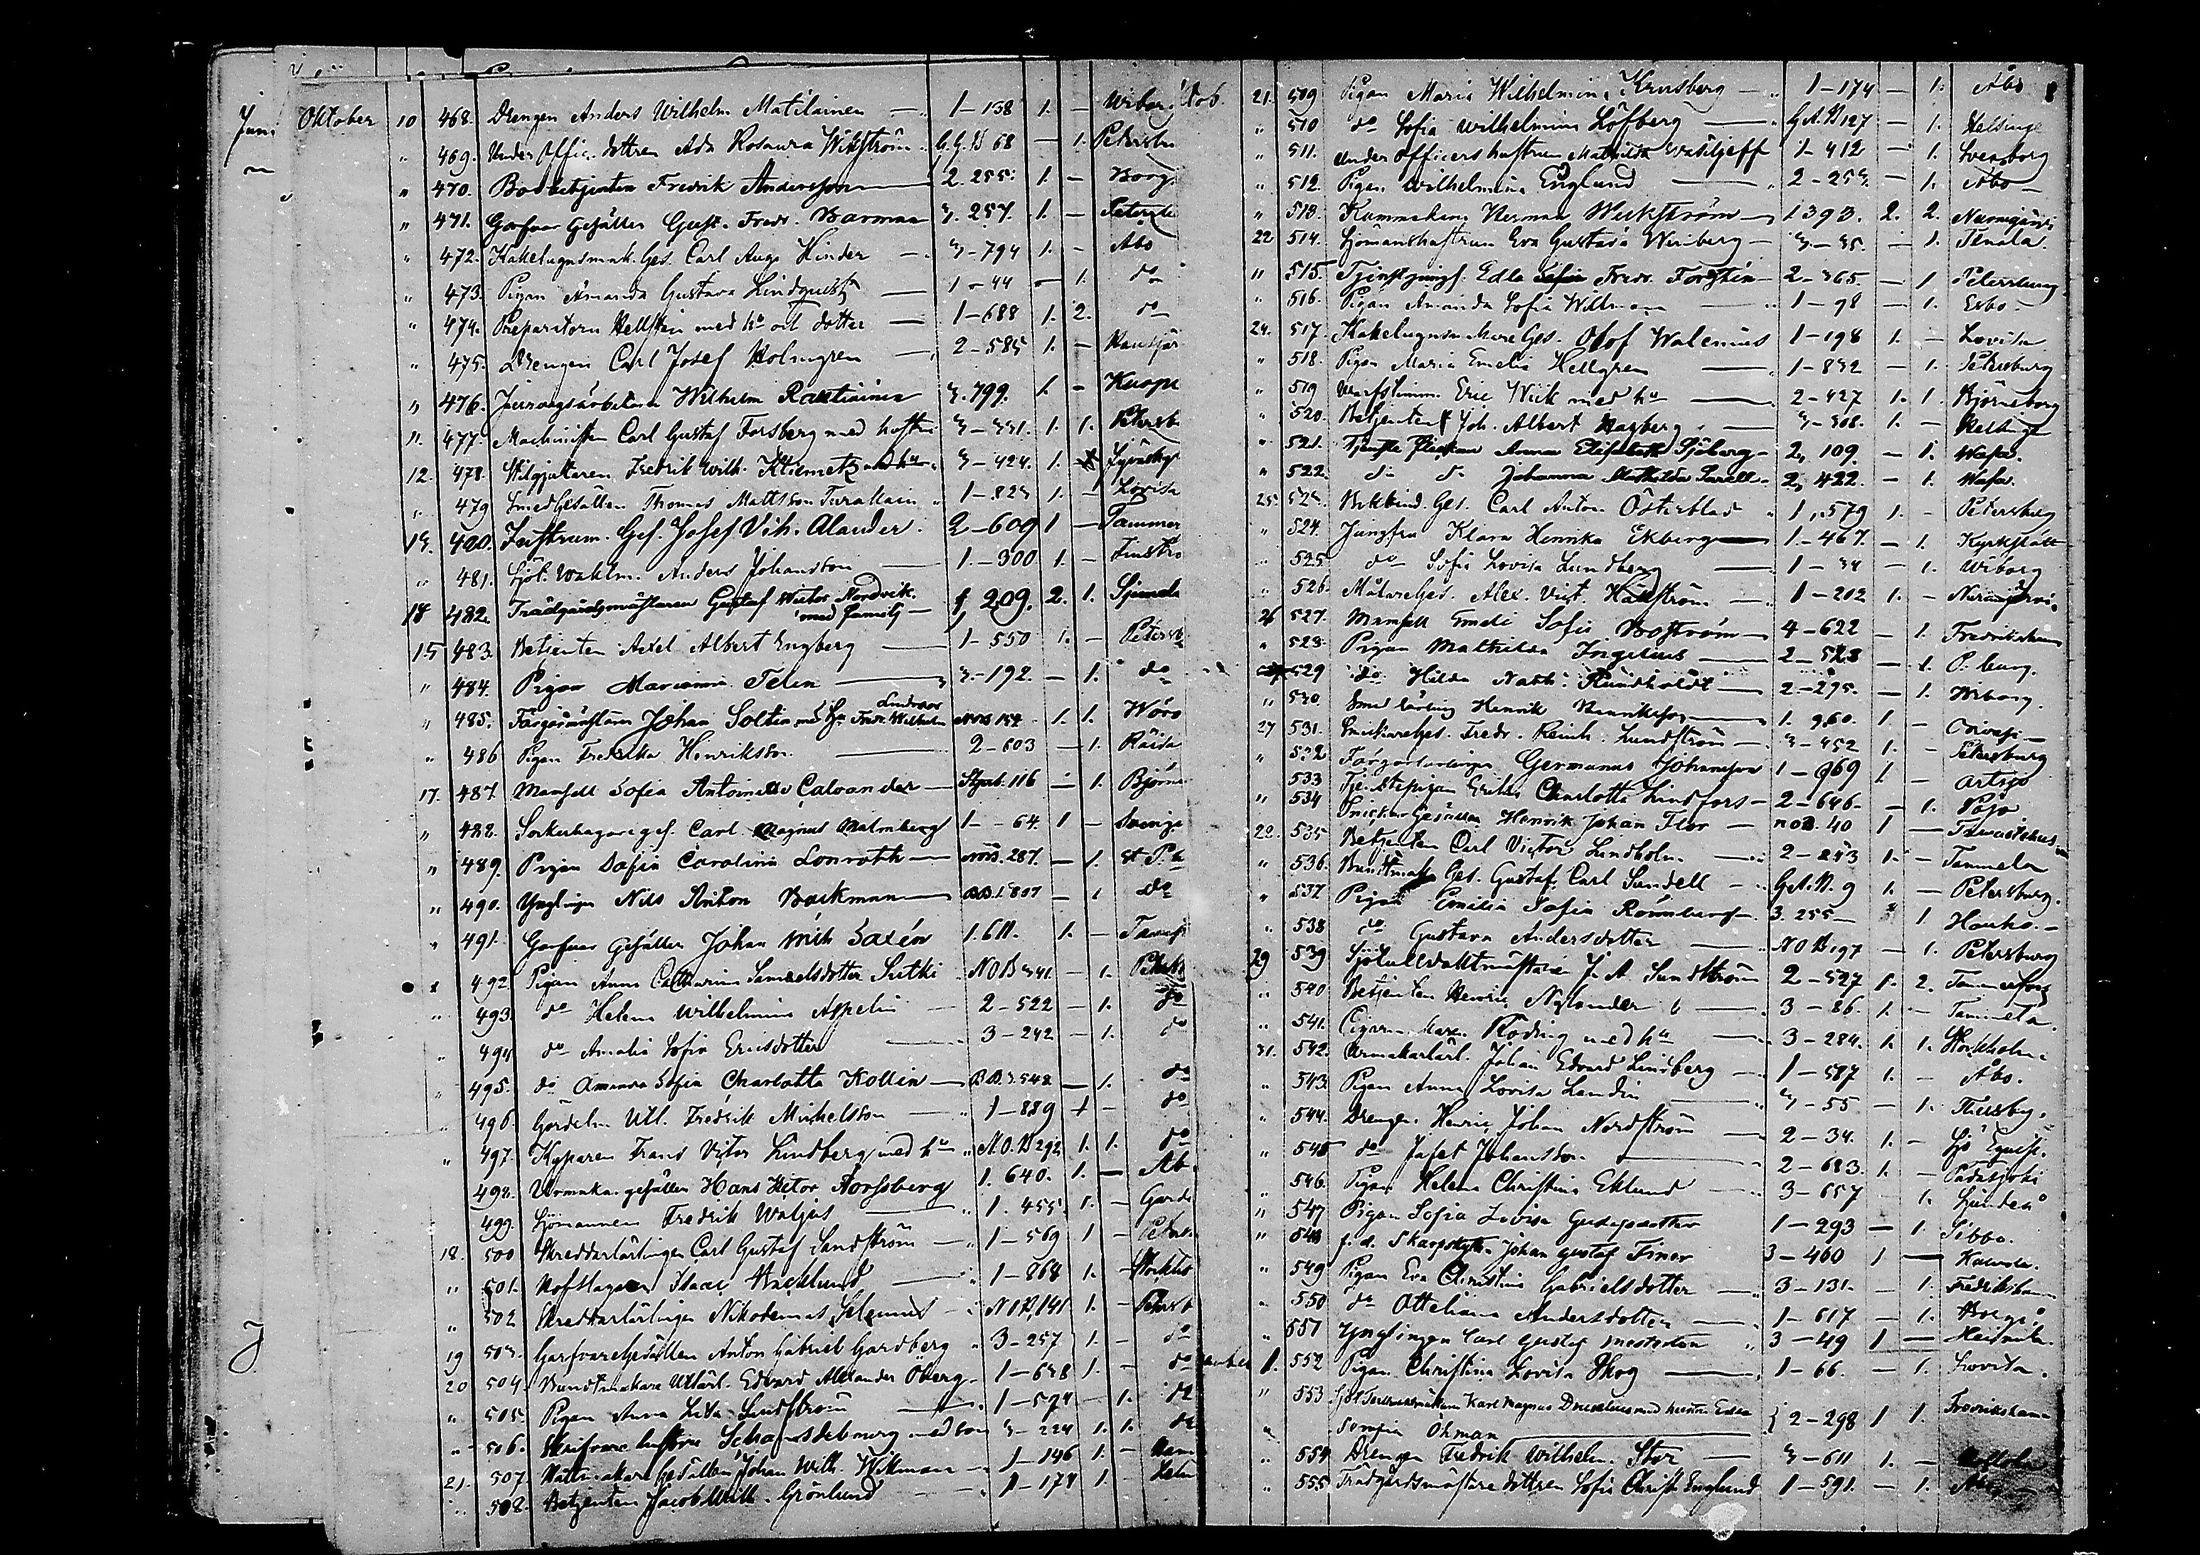 Oktober 10 468. Drengen Anders Wilhelm Matilainen 1-138 1. - Wibor
" 469. Under Offic. dottren Ada Rosaura Wikström G.G.B 68 - 1. Petersbu
" 470. Bodbetjenten Fredrik Andersson 2.255. 1. - Borg
" 471. Garfvar Gesällen Gust. Fredr. Barman 3. 257. 1. -
" 472. Kakelugnsmak. Ges. Carl Aug. Hinder 3-794 1. - Abo
" 473. Pigan Amanda Gustava Lindqvist 1-44 - 1. do
" 474. Preparatorn Hellstén med hu och dotter 1-688 1. 2. do
" 475. Drengen Carl Josef Holmgren 2-585 1. -
" 476. Jernvägsarbetaren Wilhelm Rautiainen 3.799. 1. - Kuopi
11. 477. Machinisten Carl Gustaf Forsberg med hustru 3-331. 1. 1. Petersb
12. 478. Stilgjutaren Fredrik Wilh. Klemetz med hu 3-424. 1.
" 479 Smedgesällen Thomas Mattsson 1-823 1. - Lovisa
13. 480. Instrum. Ges. Josef Vih. Alander 2-609 1 - Tammer
" 481. Sjöt. Waktm. Anders Johansson 1-300 1. - Finströ
14 482. Trädgårdsmästaren Gustaf Victor Nordvik. med familj 1, 209. 2. 1. Sjunde
15 483. Betjenten Axel Albert Engberg 1-550 1. - Petersb
" 484. Pigan Marianna Telin 3.-192. - 1. do
" 485. Färgaremästaren Johan Soltin med hu Fredr. Wilhelm 154 1. 1. Wörö
" 486 Pigan Fredrika Henriksson 2-603 - 1.
17. 487. Mamsell Sofia Antoinette Calvander 116 - 1. Björne
" 488. Sockerbagare ges. Carl Magnus Malmberg 1--64. 1 - Sverige
" 489. Pigan Sofia Carolina Lonroth 287. - 1. St P.b
" 490. Ynglingen Nils Anton Backman 807 - 1 do
" 491. Garfvar Gesällen Johan Wilh Saxén 1.611. 1. -
" 492. Pigan Anna Catharina Samuelsdotter Sutki NOB 341. - 1. Petersb
" 493. do Helena Wilhelmina Appelin 2-522 - 1. do
" 494 do Amalia Sofia Ericsdotter 3-242 - 1. do
" 495. do Amanda Sofia Charlotta Kollin 548 - 1. do
" 496. Gördelm. Utl. Fredrik Michelsson 1-889 1 - do
" 497. Kyparen Frans Victor Lindberg med hu N.O.B 292 1. 1. do
498. Urmakar gesällen Hans Victor Forssberg 1. 640. 1. - Ab
499. Sjömannen Fredrik Waljus 1. 455 1. - Garde
18. 500 Skreddarlärlingen Carl Gustaf Sandström 1-569 1 - Petersb
" 501. Hofslagaren Isaac Backlund 1-868 1. - Stockho
" 502 Skreddarlärlingen Nikodemus Selenius 141 1. - Petersb
19 503. Garfvaregesällen Anton Gabriel Gardberg 3-257 1. - do
20 504. Buntmakare Utlärl. Edvard Alexander Öberg 1-638 1. - do
" 505 Pigan Anna Lisa Lindström 1-594 - 1. do
" 506. Skrifvare hustru med son 3-224 1. 1. do
21. 507 Hattmakare Gesällen Johan Wilh. Wikman 1-146 1. -
" 508. Betjenten Jacob Wilh. Grönlund 1-174 1. -
21. 509 Pigan Maria Wilhelmina Krusberg 1-174 - 1. Åbo 8
" 510 do Sofia Wilhelmina Löfberg G.A.B 127 - 1. Helsinge
" 511. Under officers hustrun Mathilda Wasiljeff 1-412 - 1. Sveaborg
" 512. Pigan Wilhelmina Englund 2-253. - 1. Åbo
" 513. Kammakaren Herman Wickström 1 393. 2. 2. Nurmijärvi
22 514. Sjömanshustrun Eva Gustava Winberg 3.-35. - 1. Tenala.
" 515. Edla Fredr. Forsstén 2-365. - 1 Petersburg
" 516. Pigan Amanda Sofia Willman 1-98 - 1. Esbo
24. 517. Kakelugnsmakare Ges. Olof Walenius 1-198 1. - Lovisa
" 518. Pigan Maria Emelia Hellgren 1-832 - 1. Petersburg
" 519 Warfstimm. Eric Wiik med hu 2-427 1. 1. Björneborg
" 520. Betjenten Joh. Albert Hagberg 3-308. 1. - Helsinge
" 521. Tjenste Flickan Anna Elisabeth Sjöberg 2, 109. - 1. Wasa.
" 522. do do Johanna Mathilda 2, 422. - 1. Wasa.
25. 523. Bokbind. Ges. Carl Anton Österblad 1, 579 1. - Petersburg
" 524. Jungfru Klara Henrika Ekberg 1-467. - 1. Kyrkslätt
" 525 do Sofia Lovisa Lundberg 1-34 - 1. Wiborg
" 526. Målare Ges. Alex. Vict. Hällström 1-202 1. - Nurmijärvi.
26 527. Mamsell Emeli Sofie Boström 4-622 - 1. Fredrikshamn
" 528. Pigan Mathilda Ingelius 2-528 - 1. P. burg.
529 do Hilda Nath. Rundholdt 2-295. - 1. Wiborg.
" 530. Smed Lärling Henrik Henriksson 1. 960. 1. -
27 531. Snickareges. Fredr. Reinh. Lundström 3-452 1. - Petersburg
532 Färgarlärlingen Germanus Johansson 1-969 1 - Artsjö
533 Tjenstepigan Charlotta Lindfors 2-646. - 1. Pojo
" 534 Snickare Gesällen Henrik Johan Flor NOB. 40 1 - Tavastehus
28. 535 Betjenten Carl Victor Lindholm 2-253 1. - Tammela
" 536. Buntmak. Ges. Gustaf Carl Sundell G.A.B. 9 1. - Petersburg.
" 537 Pigan Emilia Sofia Rönnberg 3.255 1
" 538 do Gustava Andersdotter NOB 197 - 1. Petersburg
29 539 Sjötullvaktmästare J. A. Sundström 2-527 1. 2. Tammerfors
" 540 Betjenten Henric Nylander 3-86. 1. - Tammela.
" 541. Cigarrm. Max. Roding med hu 3-284. 1. 1. Stockholm
31. 542. Urmakarlärl. Johan Edvard Lindberg 1-587 1. - Åbo.
" 543. Pigan Anna Lovisa Lundin 3-55 - 1. Petersbrg.
" 544. Drengen Henric Johan Nordström 2-34. 1. -
" 545 do Jafet Johansson 2-683. 1. - Padasjoki
" 546. Pigan Helena Christina Eklund 3-657 1. Sjundeå
" 547 Pigan Sofia Lovisa 1-293 - 1. Sibbo.
" 548 f. d. Skarpskytten Johan Gustaf Finer 3-460 1 -
" 549 Pigan Eva Christina Gabrielsdotter 3-131. - 1. Fredrikshamn
550 do Otteliana Andersdotter 1-617 - 1. Borgå
" 551 Ynglingen Carl Gustaf 3-49 1 -
1. 552 Pigan Christina Lovisa Skog 1-66. - 1. Lovisa.
" 553 Karl Magnus med hustru Edla
Sofia Öhman } 2-298 1 1. Fredrikshamn
" 554 Drengen Fredrik Wilhelm Stor 3-611 1. -
" 555 Trädgårdsmästare dottren Sofia Christ. Englund 1-591. - 1. Åbo